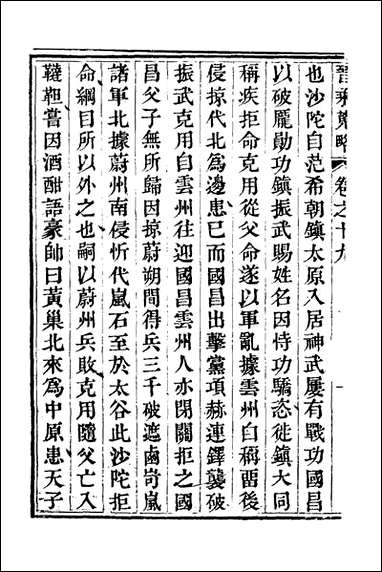 晉乘蒐略 卷之十九
也沙陀自范希朝鎮太原入居神武屢有戰功國昌
以破龐勛功鎮振武賜姓名因恃功驕恣徙鎮大同
稱疾拒命克用從父命遂以軍亂據雲州自稱畱後
侵掠代北為邊患已而國昌出擊黨項赫連鐸襲破
振武克用自雲州往迎國昌雲州人亦閉關拒之國
昌父子無所歸因掠蔚朔間得兵三千破遮鹵岢嵐
諸軍北據蔚州南侵忻代嵐石至於太谷此沙陀拒
命綱目所以外之也嗣以蔚州兵敗克用隨父亡入
韃靼嘗因酒酣語豪帥曰黃巢北來為中原患天子